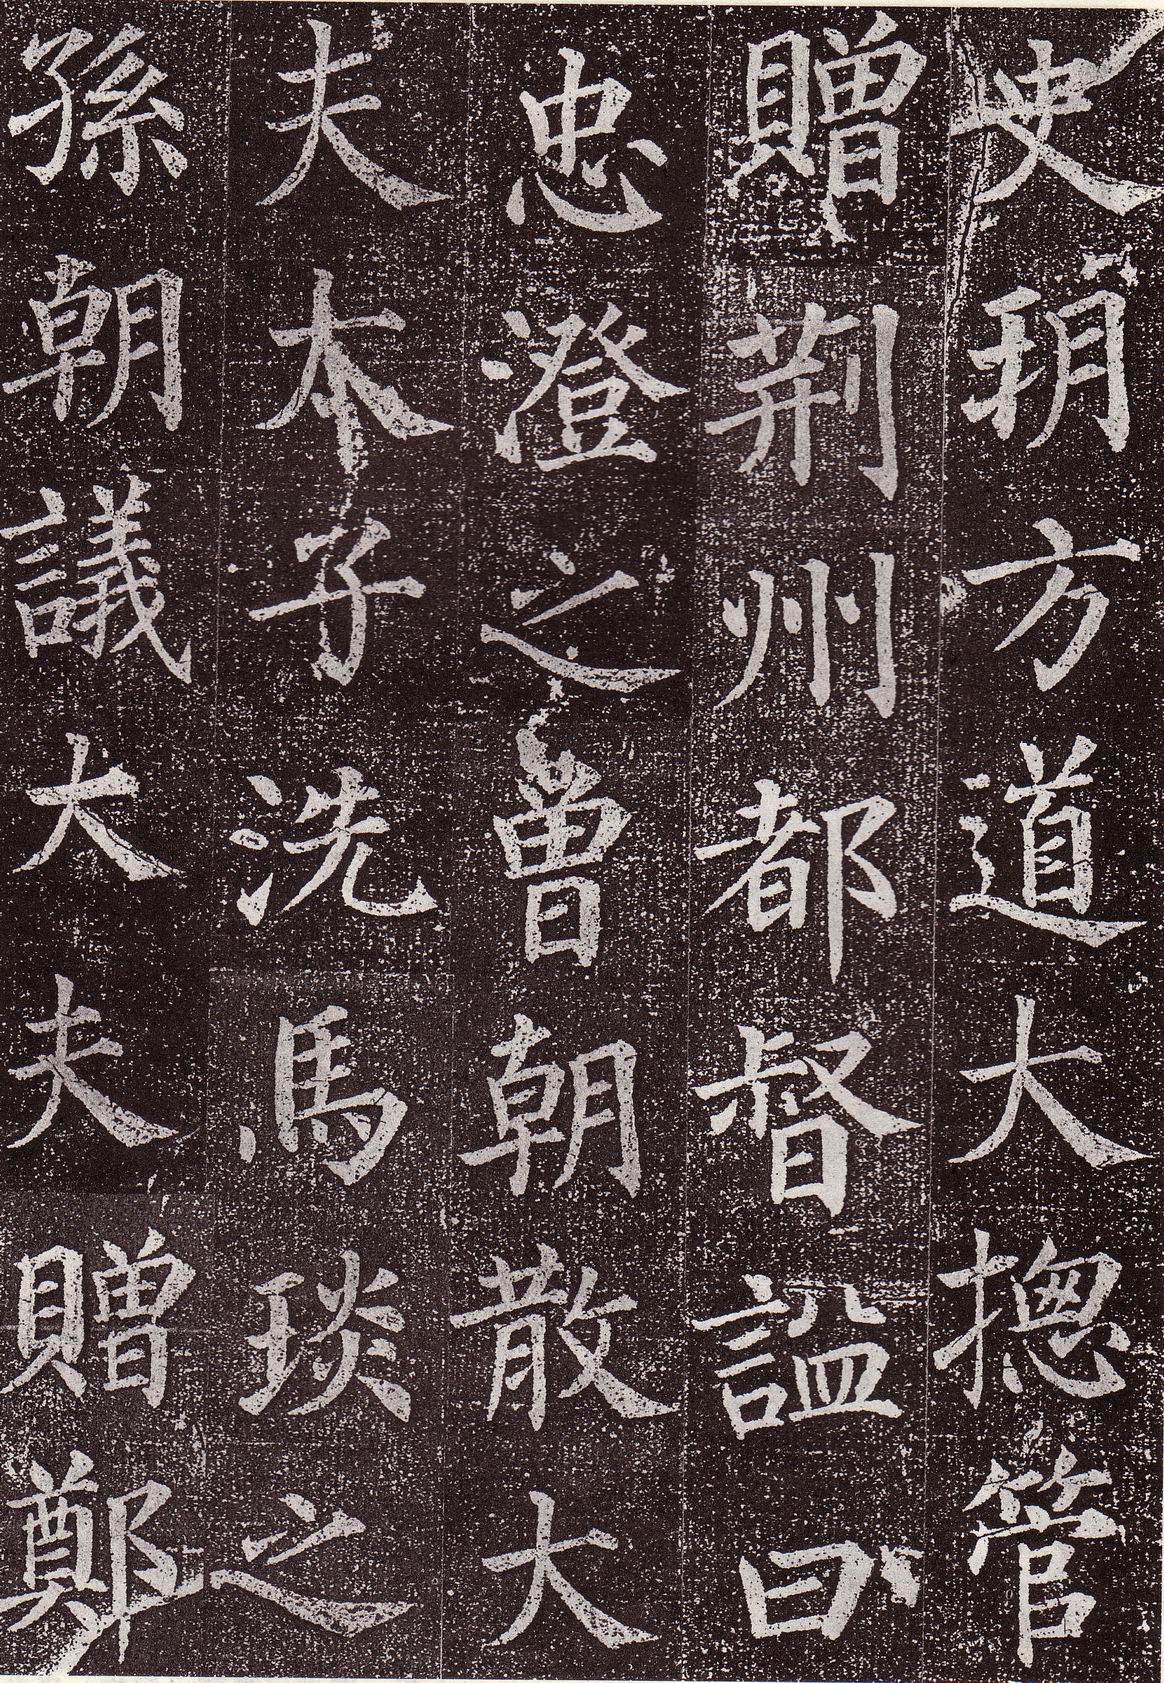 史玥方道大揔管
贈荊州都督謚曰
忠澄之曽朝散大
夫本子洗馬琰之
孫朝議大夫贈鄭